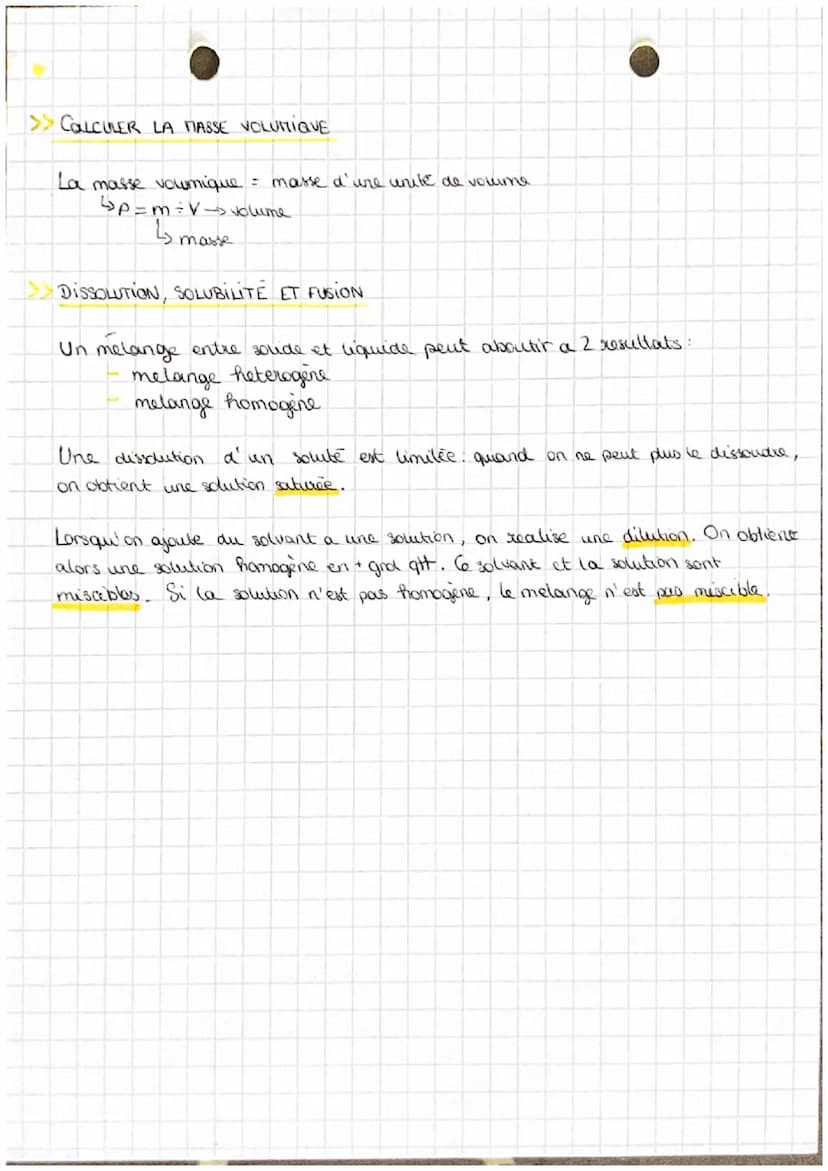 >> CALCULER LA MASSE VOLUMIQUE
La masse voumique = masse d'une unité de volume
↳ρ = m ÷ V → volume
↳ masse
>> DISSOLUTION, SOLUBILITÉ ET FUSION
Un mélange entre solide et liquide peut aboutir a 2 resultats :
- melange heterogène
- melange homogène
Une dissolution d'un soluté est limitée : quand on ne peut plus le dissoudre,
on obtient une solution saturée.
Lorsqu'on ajoute du solvant a une solution, on realise une dilution. On obtient
alors une solution homogène en + grd qtt. Ce solvant et la solution sont
miscibles. Si la solution n'est pas homogène, le melange n'est pas miscible.